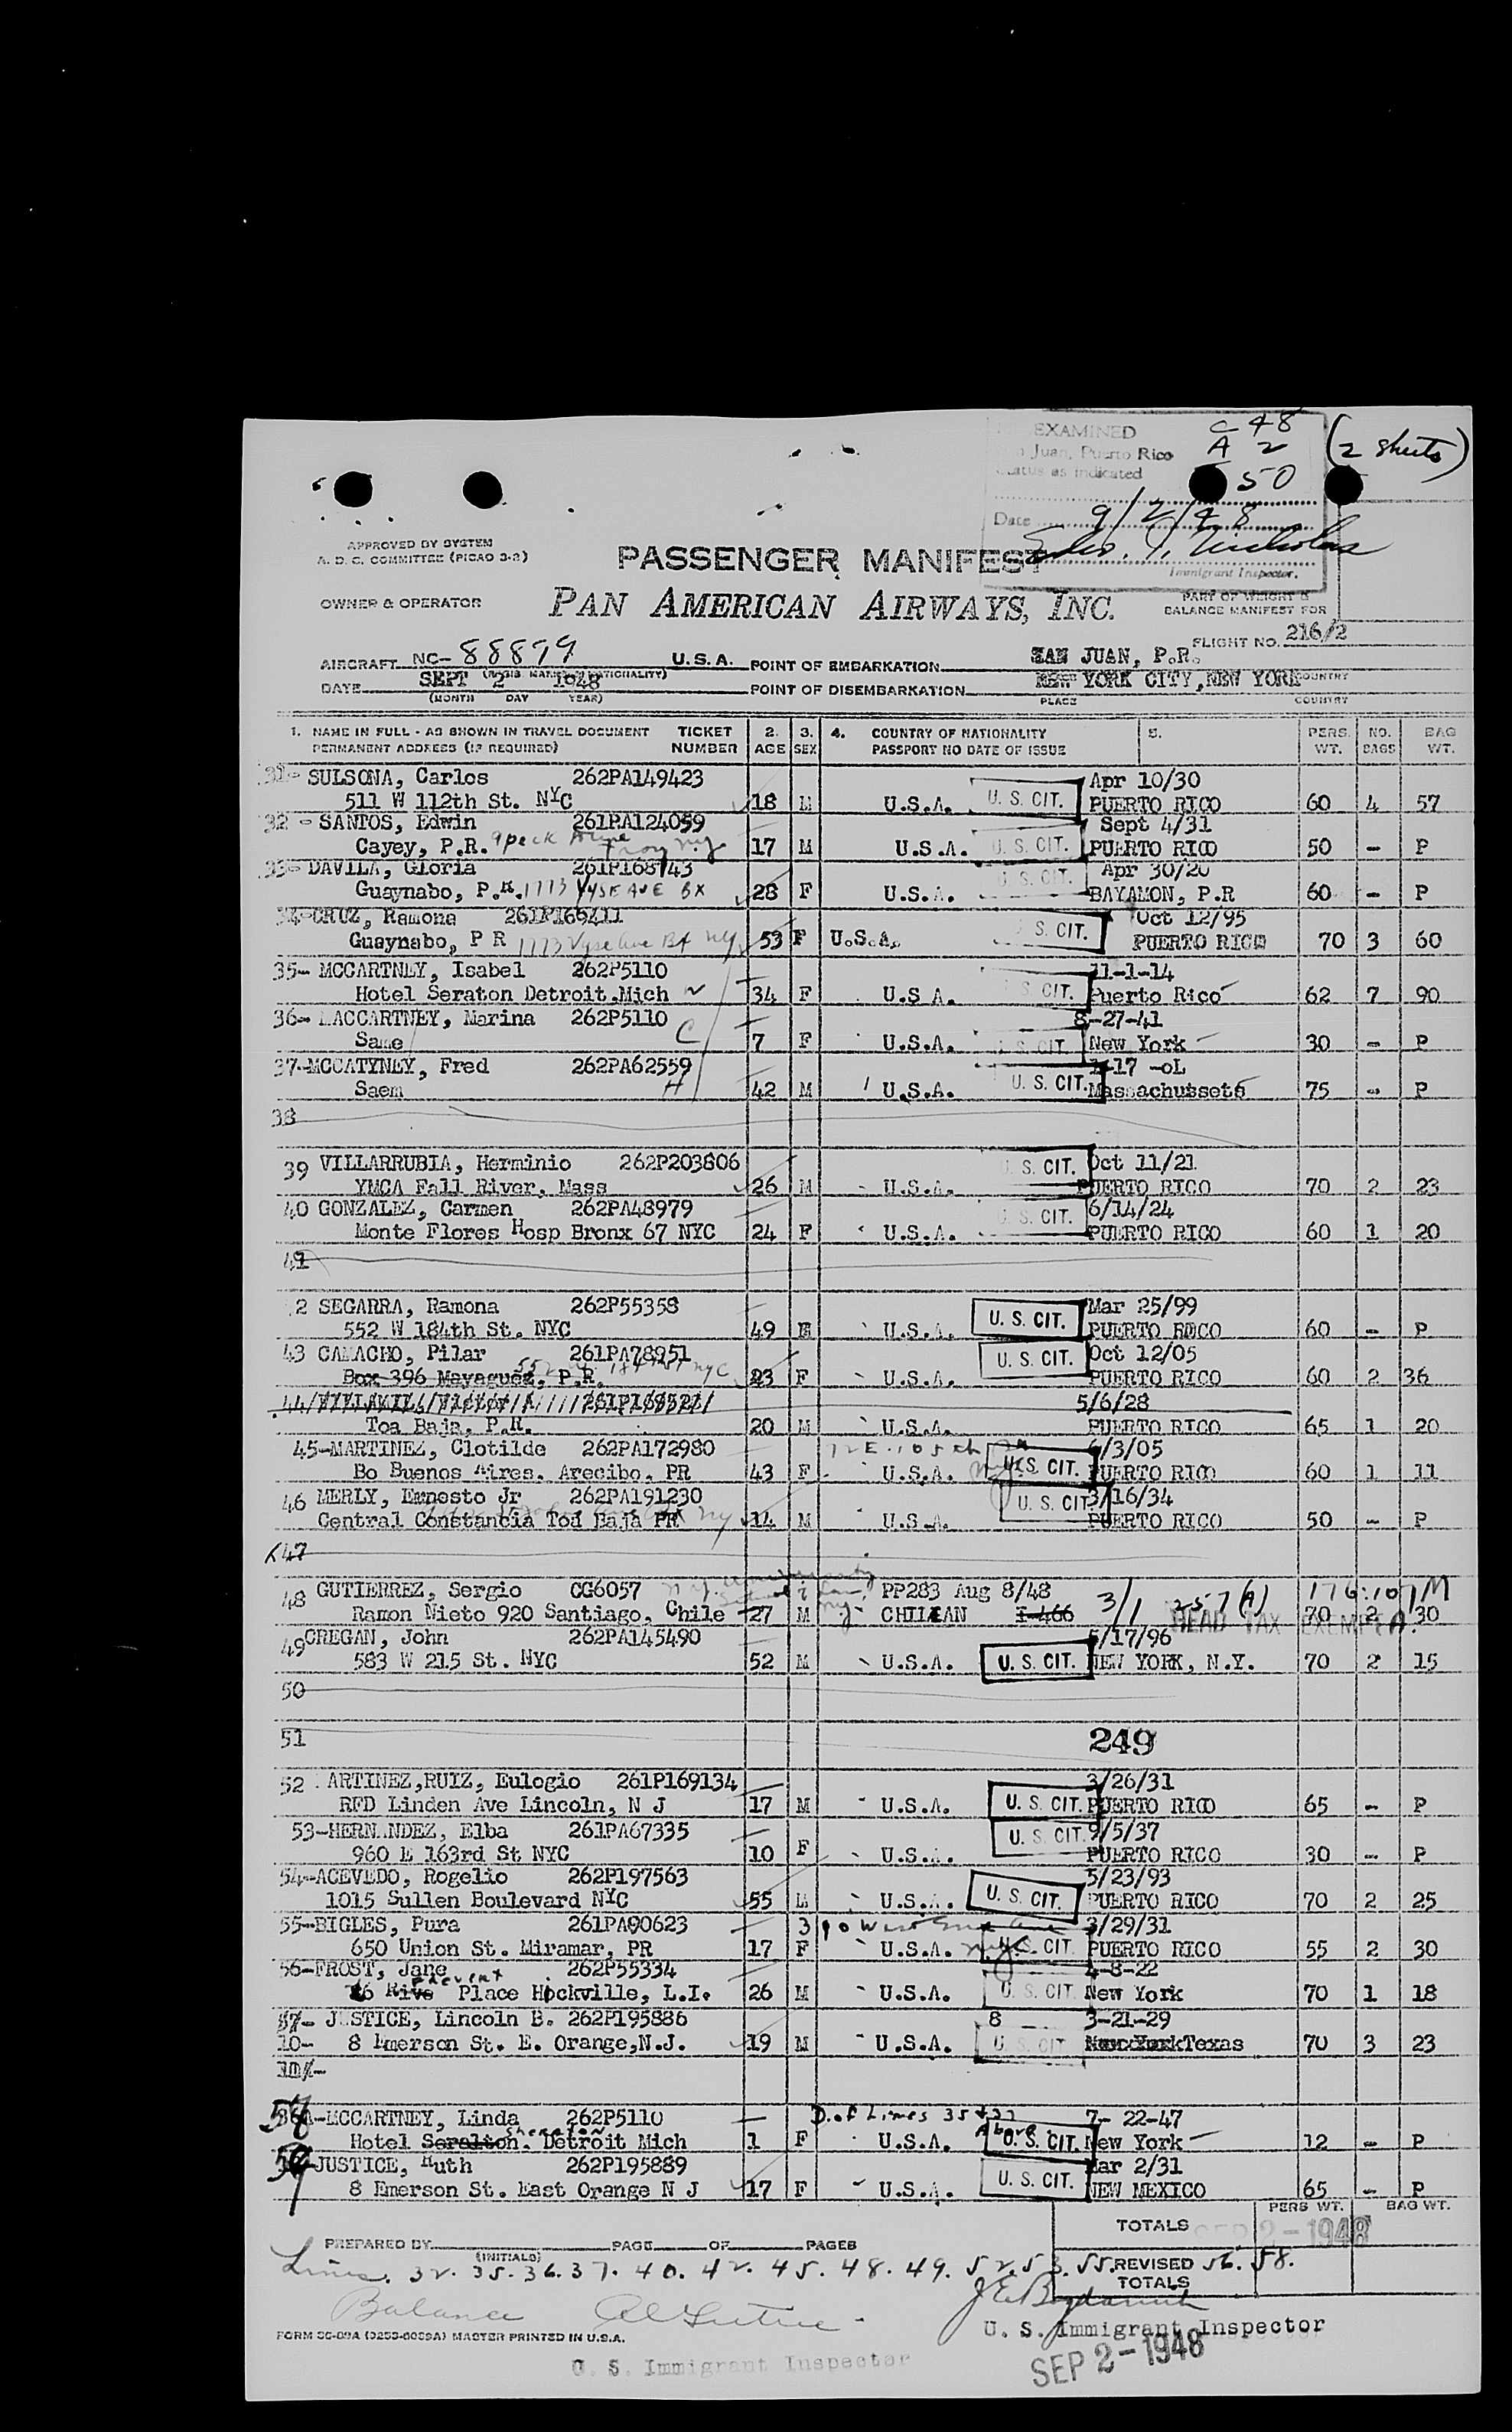 EXAMINED
Juan, Puerto Rico
Status as indicated
C 48
A 2
50
(2 sheets)
Date 9/2/48
Immigrant Inspector.
APPROVED BY SYSTEM
A. D. C. COMMITTEE (PICAO 3-2)
PASSENGER MANIFEST
OWNER & OPERATOR PAN AMERICAN AIRWAYS, INC.
PART OF WEIGHT &
BALANCE MANIFEST FOR
FLIGHT NO. 216/2
AIRCRAFT NC-88899 U.S.A. POINT OF EMBARKATION SAN JUAN, P.R.
DATE SEPT 2 1948 POINT OF DISEMBARKATION NEW YORK CITY,NEW YORK COUNTRY
(MONTH DAY YEAR) PLACE COUNTRY
1. NAME IN FULL - AS SHOWN IN TRAVEL DOCUMENT TICKET 2. 3. 4. COUNTRY OF NATIONALITY 5. PERS. NO. BAG
PERMANENT ADDRESS (IF REQUIRED) NUMBER AGE SEX PASSPORT NO DATE OF ISSUE WT. BAGS WT.
31- SULSONA, Carlos 262PA149423 Apr 10/30
511 W 112th St. NYC 18 M U.S.A. U. S. CIT. PUERTO RICO 60 4 57
32 - SANTOS, Edwin 261PA124059 Sept 4/31
Cayey, P.R. 17 M U.S.A. U. S. CIT. PUERTO RICO 50 - P
33- DAVILA, Gloria 261P168743 Apr 30/20
Guaynabo, P.R. 1773 VYSE AVE BX 28 F U.S.A. U. S. CIT. BAYAMON, P.R 60 - P
34-CRUZ, Ramona 261P169411 Oct 12/95
Guaynabo, P R 1773 Vyse Ave BX NY 53 F U.S.A. S. CIT. PUERTO RICO 70 3 60
35- MCCARTNEY, Isabel 262P5110 11-1-14
Hotel Seraton Detroit.Mich 34 F U.S A. S CIT. Puerto Rico 62 7 90
36- MACCARTNEY, Marina 262P5110 8-27-41
Same C 7 F U.S.A. S CIT New York 30 - P
37-MCCATYNEY, Fred 262PA62559 1-17 -oL
Saem H 42 M U.S.A. U. S. CIT. Massachussets 75 - P
38
39 VILLARRUBIA, Herminio 262P203806 Oct 11/21
YMCA Fall River, Mass 26 M U.S.A. S. CIT. PUERTO RICO 70 2 23
40 GONZALEZ, Carmen 262PA48979 6/14/24
Monte Flores Hosp Bronx 67 NYC 24 F U.S.A. S. CIT. PUERTO RICO 60 1 20
41
2 SEGARRA, Ramona 262P55358 Mar 25/99
552 W 184th St. NYC 49 U.S.A. U. S. CIT. PUERTO RICO 60 - P
43 CAMACHO, Pilar 261PA78951 Oct 12/05
Box 396 Mayaguez, P.R. 23 F U.S.A. U. S. CIT. PUERTO RICO 60 2 36
44/VILLAMIL/ 5/6/28
Toa Baja, P.R. 20 M U.S.A. PUERTO RICO 65 1 20
45-MARTINEZ, Clotilde 262PA172980 72 E. 105th /3/05
Bo Buenos Aires. Arecibo, PR 43 F U.S.A. U.S. CIT. PUERTO RICO 60 1 11
46 MERLY, Ernesto Jr 262PA191230 3/16/34
Central Constancia Tod Baja PR 14 M U.S.A. U. S. CIT PUERTO RICO 50 - P
47
48 GUTIERREZ, Sergio CG6057 PP283 Aug 8/48
Ramon Nieto 920 Santiago, Chile 27 M CHILEAN I-466 3/1 257(A) HEAD TAX EXEMPT 70 2 30
49CREGAN, John 262PA145490 5/17/96
583 W 215 St. NYC 52 M U.S.A. U. S. CIT. NEW YORK, N.Y. 70 2 15
50
51 249
52 ARTINEZ,RUIZ, Eulogio 261P169134 3/26/31
RFD Linden Ave Lincoln, N J 17 M U.S.A. U. S. CIT. PUERTO RICO 65 - P
53-HERNANDEZ, Elba 261PA67335 9/5/37
960 E 163rd St NYC 10 F U.S.A. U. S. CIT. PUERTO RICO 30 - P
54-ACEVEDO, Rogelio 262P197563 5/23/93
1015 Sullen Boulevard NYC 55 M U.S.A. U. S. CIT. PUERTO RICO 70 2 25
55-BIGLES, Pura 261PA90623 390 West End Ave 3/29/31
650 Union St. Miramar, PR 17 F U.S.A. NYC U.S. CIT. PUERTO RICO 55 2 30
56-FROST, Jane 262P55334 4-8-22
Place Hockville, L.I. 26 M U.S.A. U. S. CIT New York 70 1 18
57- JUSTICE, Lincoln B. 262P195886 8 3-21-29
10- 8 Emerson St. E. Orange,N.J. 19 M U.S.A. U. S. CIT Texas 70 3 23
58 36A-MCCARTNEY, Linda 262P5110 D. of Lines 35 & 37 7- 22-47
Hotel Sheraton. Detroit Mich 1 F U.S.A. Above U. S. CIT. New York 12 - P
59 JUSTICE, Ruth 262P195889 Mar 2/31
8 Emerson St. East Orange N J 17 F U.S.A. U. S. CIT. NEW MEXICO 65 - P
PERS WT. BAG WT.
TOTALS SEP 2-1948
PREPARED BY PAGE OF PAGES
(INITIALS)
Lines. 32. 35. 36. 37. 40. 42. 45. 48. 49. 52. 53. 55. 56. 58.
REVISED
TOTALS
Balance
U. S. Immigrant Inspector
FORM SC-09A (9253-0059A) MASTER PRINTED IN U.S.A.
U. S. Immigrant Inspector
SEP 2-1948